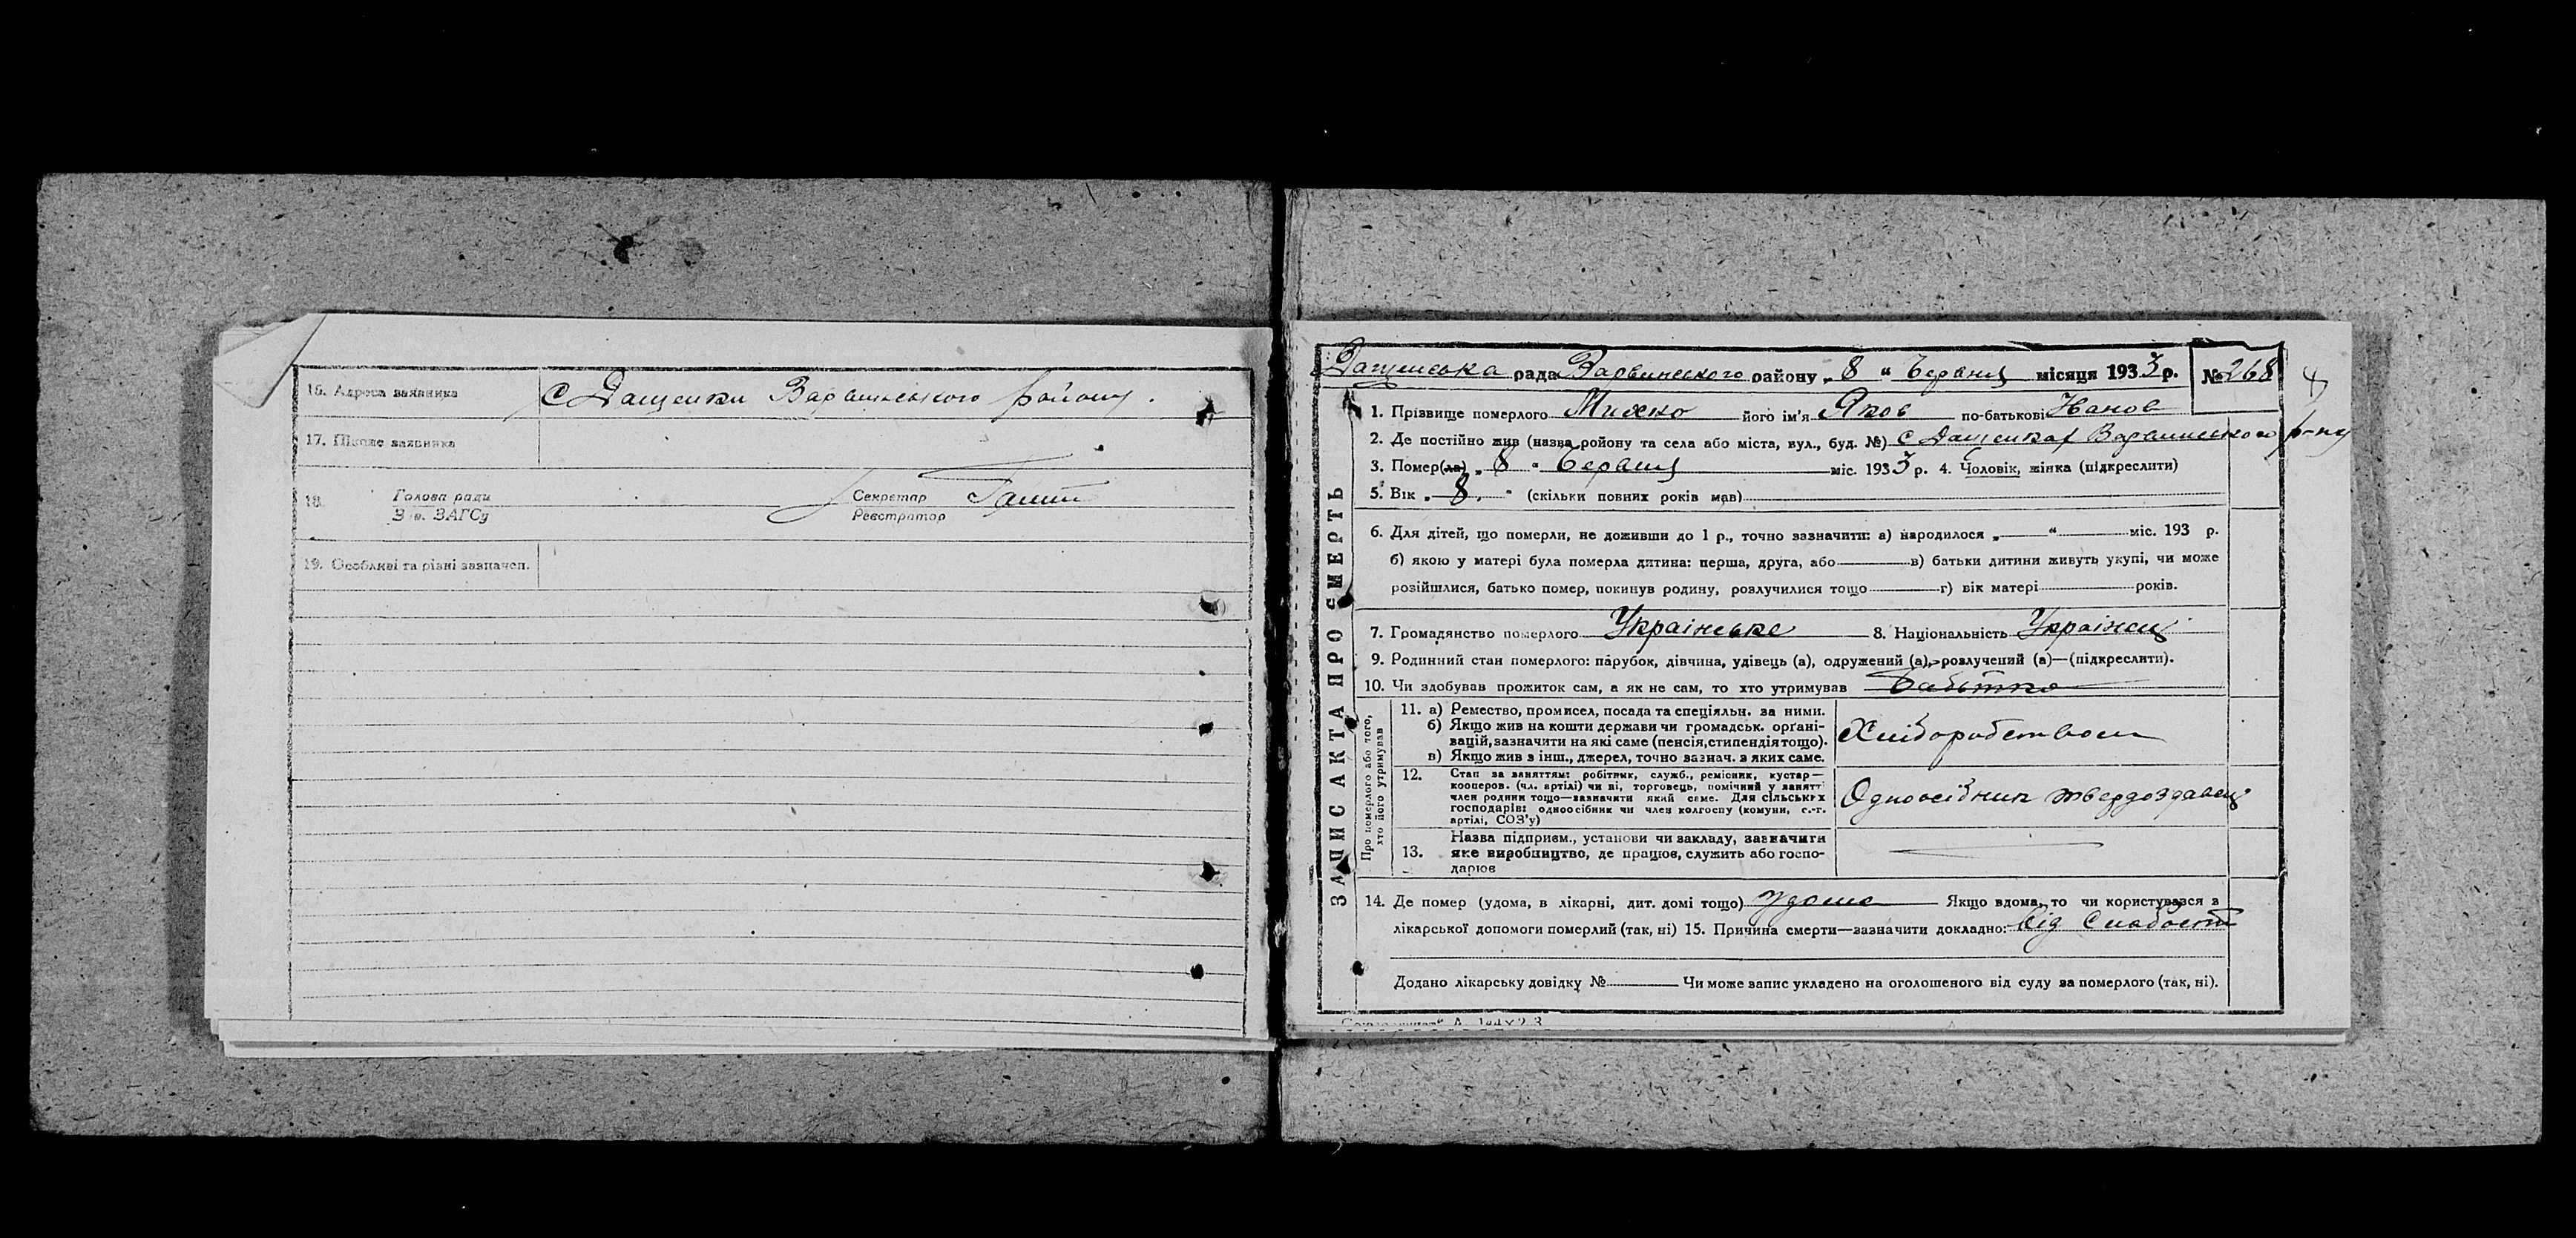 16. Адреса заявника с Дащенки Варвинського району.
17. Підпис заявника
18. Голова ради Секретар
Зав. ЗАГСу Реєстратор
19. Особливі та різні зазначен.
Дащенська рада Варвинського району „8“ Червня місяця 1933 р. № 268
ЗАПИС АКТА ПРО СМЕРТЬ
1. Прізвище померлого його ім'я Яков по-батькові Іванов
2. Де постійно жив (назва району та села або міста, вул., буд. №) с Дащенках Варвинського р-ну
3. Помер(ла) „8“ Червня міс. 1933 р. 4. Чоловік, жінка (підкреслити)
5. Вік „8.“ (скільки повних років мав)
6. Для дітей, що померли, не доживши до 1 р., точно зазначити: а) народилося „ “ міс. 193 р.
б) якою у матері була померла дитина: перша, друга, або в) батьки дитини живуть укупі, чи може
розійшлися, батько помер, покинув родину, розлучилися тощо г) вік матері років.
7. Громадянство померлого Українське 8. Національність Українец
9. Родинний стан померлого: парубок, дівчина, удівець (а), одружений (а), розлучений (а)—(підкреслити).
10. Чи здобував прожиток сам, а як не сам, то хто утримував
Про померлого або того,
хто його утримував
11. а) Ремество, промисел, посада та спеціяльн. за ними.
б) Якщо жив на кошти держави чи громадськ. орґані-
зацій, зазначити на які саме (пенсія, стипендія тощо).
в) Якщо жив з інш., джерел, точно зазнач. з яких саме.
Хліборобством
12. Стан за заняттям: робітник, служб., ремісник, кустар—
кооперов. (чл. артілі) чи ні, торговець, помічний у занятт
член родини тощо—зазначити який саме. Для сільських
господарів: одноосібник чи член колгоспу (комуни, с.-г.
артілі, СОЗ'у)
Одноосібник твердоздавец
13. Назва підприєм., установи чи закладу, зазначити
яке виробництво, де працює, служить або госпо-
дарює
14. Де помер (удома, в лікарні, дит. домі тощо) удома Якщо вдома, то чи користувався в
лікарської допомоги померлий (так, ні) 15. Причина смерти—зазначити докладно: від слабості
Додано лікарську довідку № Чи може запис укладено на оголошеного від суду за померлого (так, ні).